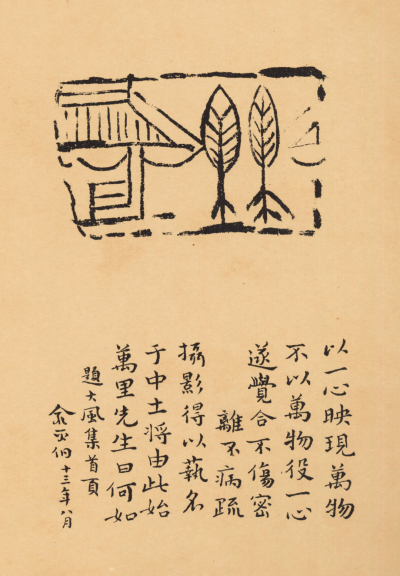 以一心映現萬物
不以萬物役一心
遂覺合不傷密
離不病疏
攝影得以藝名
于中土將由此始
萬里先生曰何如
題大風集首頁
俞平伯十三年八月